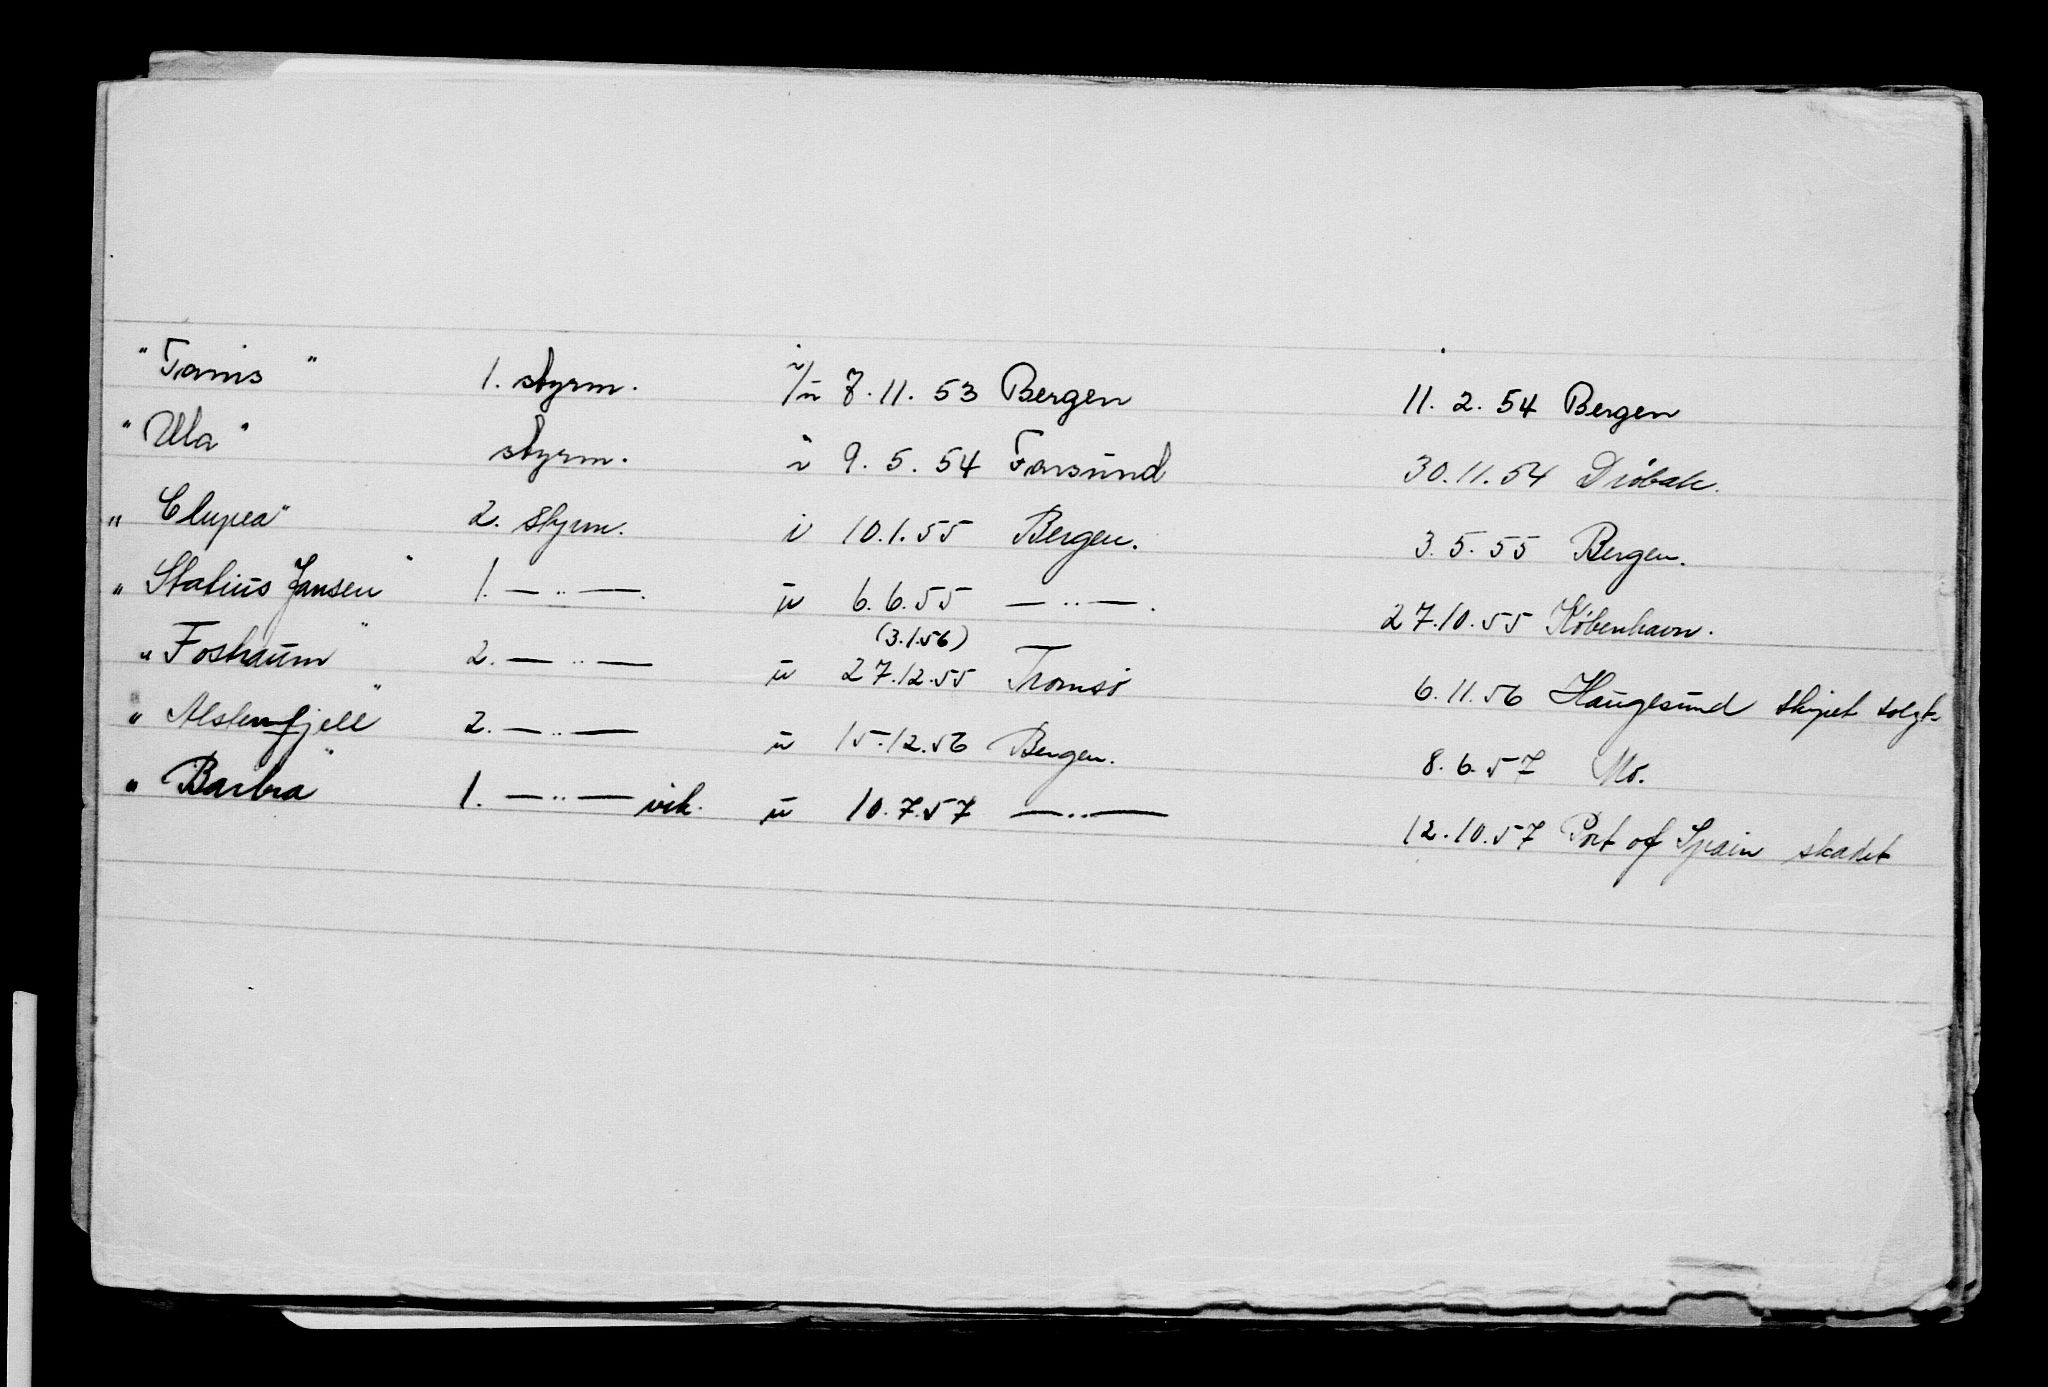 "Tanis" 1. styrm. i/u 7.11.53 Bergen 11.2.54 Bergen
"Ula" styrm. i 9.5.54 Farsund 30.11.54 Drøbak.
"Clupea" 2. styrm. i 10.1.55 Bergen. 3.5.55 Bergen.
"Statius Jansen" 1. —..—. u 6.6.55 —..—. 27.10.55 København.
(3.1.56)
"Foshaum" 2. —..— u 27.12.55 Tromsø 6.11.56 Haugesund skipet solgt
"Alstenfjell" 2. —..— u 15.12.56 Bergen. 8.6.57 Mo.
"Barbra" 1. —..— vik. u 10.7.57 —..— 12.10.57 Port of Spain skadet